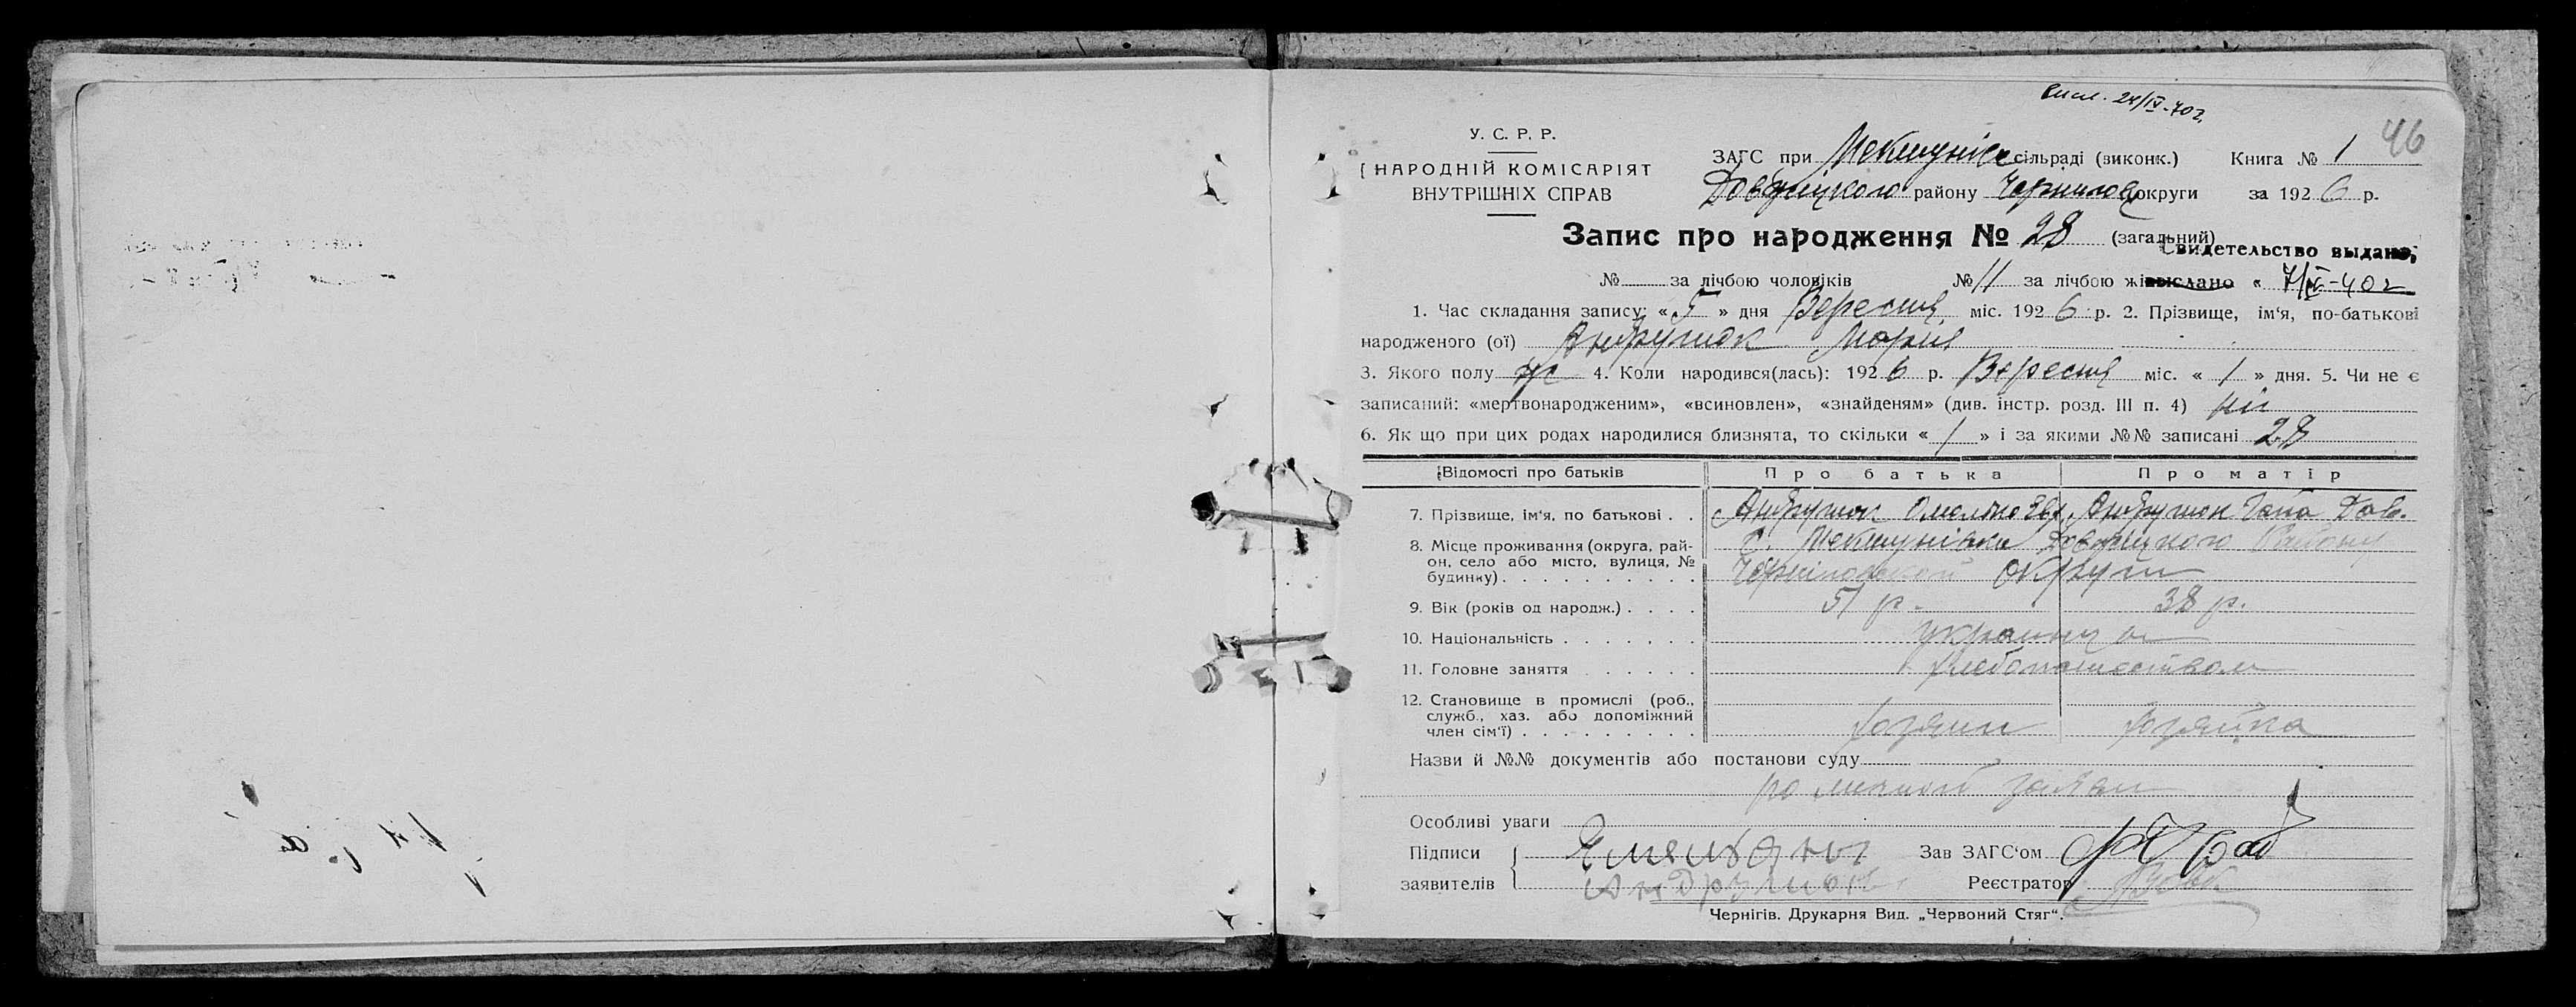 Висл. 24/IV-70 г.
46
У. С. Р. Р.
НАРОДНІЙ КОМІСАРІЯТ
ВНУТРІШНІХ СПРАВ
ЗАГС при Мекшунівс сільраді (виконк.) Книга № 1
району Чернигов округи за 1926 р.
Запис про народження № 28 (загальний)
Свидетельство выдано,
№ за лічбою чоловіків № 11 за лічбою жі
выслано « 7/ -40 г
1. Час складання запису: « 5 » дня Вересня міс. 1926 р. 2. Прізвище, ім'я, по-батькові
народженого (ої) Андрушок Марія
3. Якого полу ж 4. Коли народився(лась): 1926 р. Вересня міс. « 1 » дня. 5. Чи не є
записаний: «мертвонародженим», «всиновлен», «знайденям» (див. інстр. розд. III п. 4) ні
6. Як що при цих родах народилися близнята, то скільки « 1 » і за якими №№ записані 28
Відомості про батьків Про батька Про матір
7. Прізвище, ім'я, по батькові . . Андрушок Омелько Андрушок Гапа Дав.
8. Місце проживання (округа, рай-
он, село або місто, вулиця, №
будинку) . . . . . . . . . .
С. Мекшунівка району
округи
9. Вік (років од народж.) . . . . 51 р. 38 р.
10. Національність . . . . . . . .
11. Головне заняття . . . . . . хлебопашеством
12. Становище в промислі (роб.,
служб., хаз. або допоміжний
член сім'ї) . . . . . . . . . хозяин хозяйка
Назви й №№ документів або постанови суду
Особливі уваги
Підписи
заявителів
Емельяны
Андрушок
Зав ЗАГС'ом
Реєстратор
Чернігів. Друкарня Вид. „Червоний Стяг“.